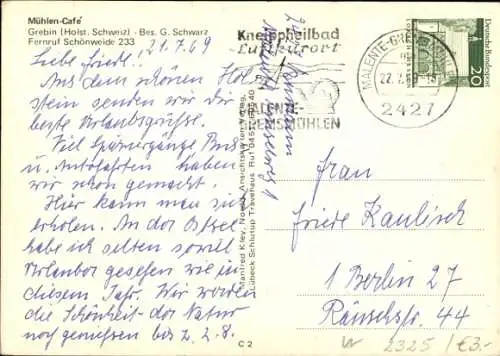 Mühlen-Café
Grebin (Holst. Schweiz) - Bes. G. Schwarz
Fernruf Schönweide 233
21.7.69
Liebe Friedel!
Aus dem schönen Hol-
stein senden wir Dir
beste Urlaubsgrüsse.
Viel Spaziergänge
u. Autofahrten haben
wir schon gemacht.
Hier kann man sich
erholen. An der Ostsee
habe ich selten soviel
Urlauber gesehen wie in
diesem Jahr. Wir werden
die Schönheit der Natur
noch geniessen bis z. 2.8.
Manfred Kley, Noello Ansichtskarten-Verlag,
Lübeck Schlutup Travehaus Ruf 0451
C 2
Kneippheilbad
Luftkurort
MALENTE-
GREMSMÜHLEN
MALENTE-GREMSMÜHLEN
22.7.69
2427
Deutsche Bundespost
20
Frau
Friedel Kaulisch
1 Berlin 27
Räuschstr. 44
2325 / €3.-